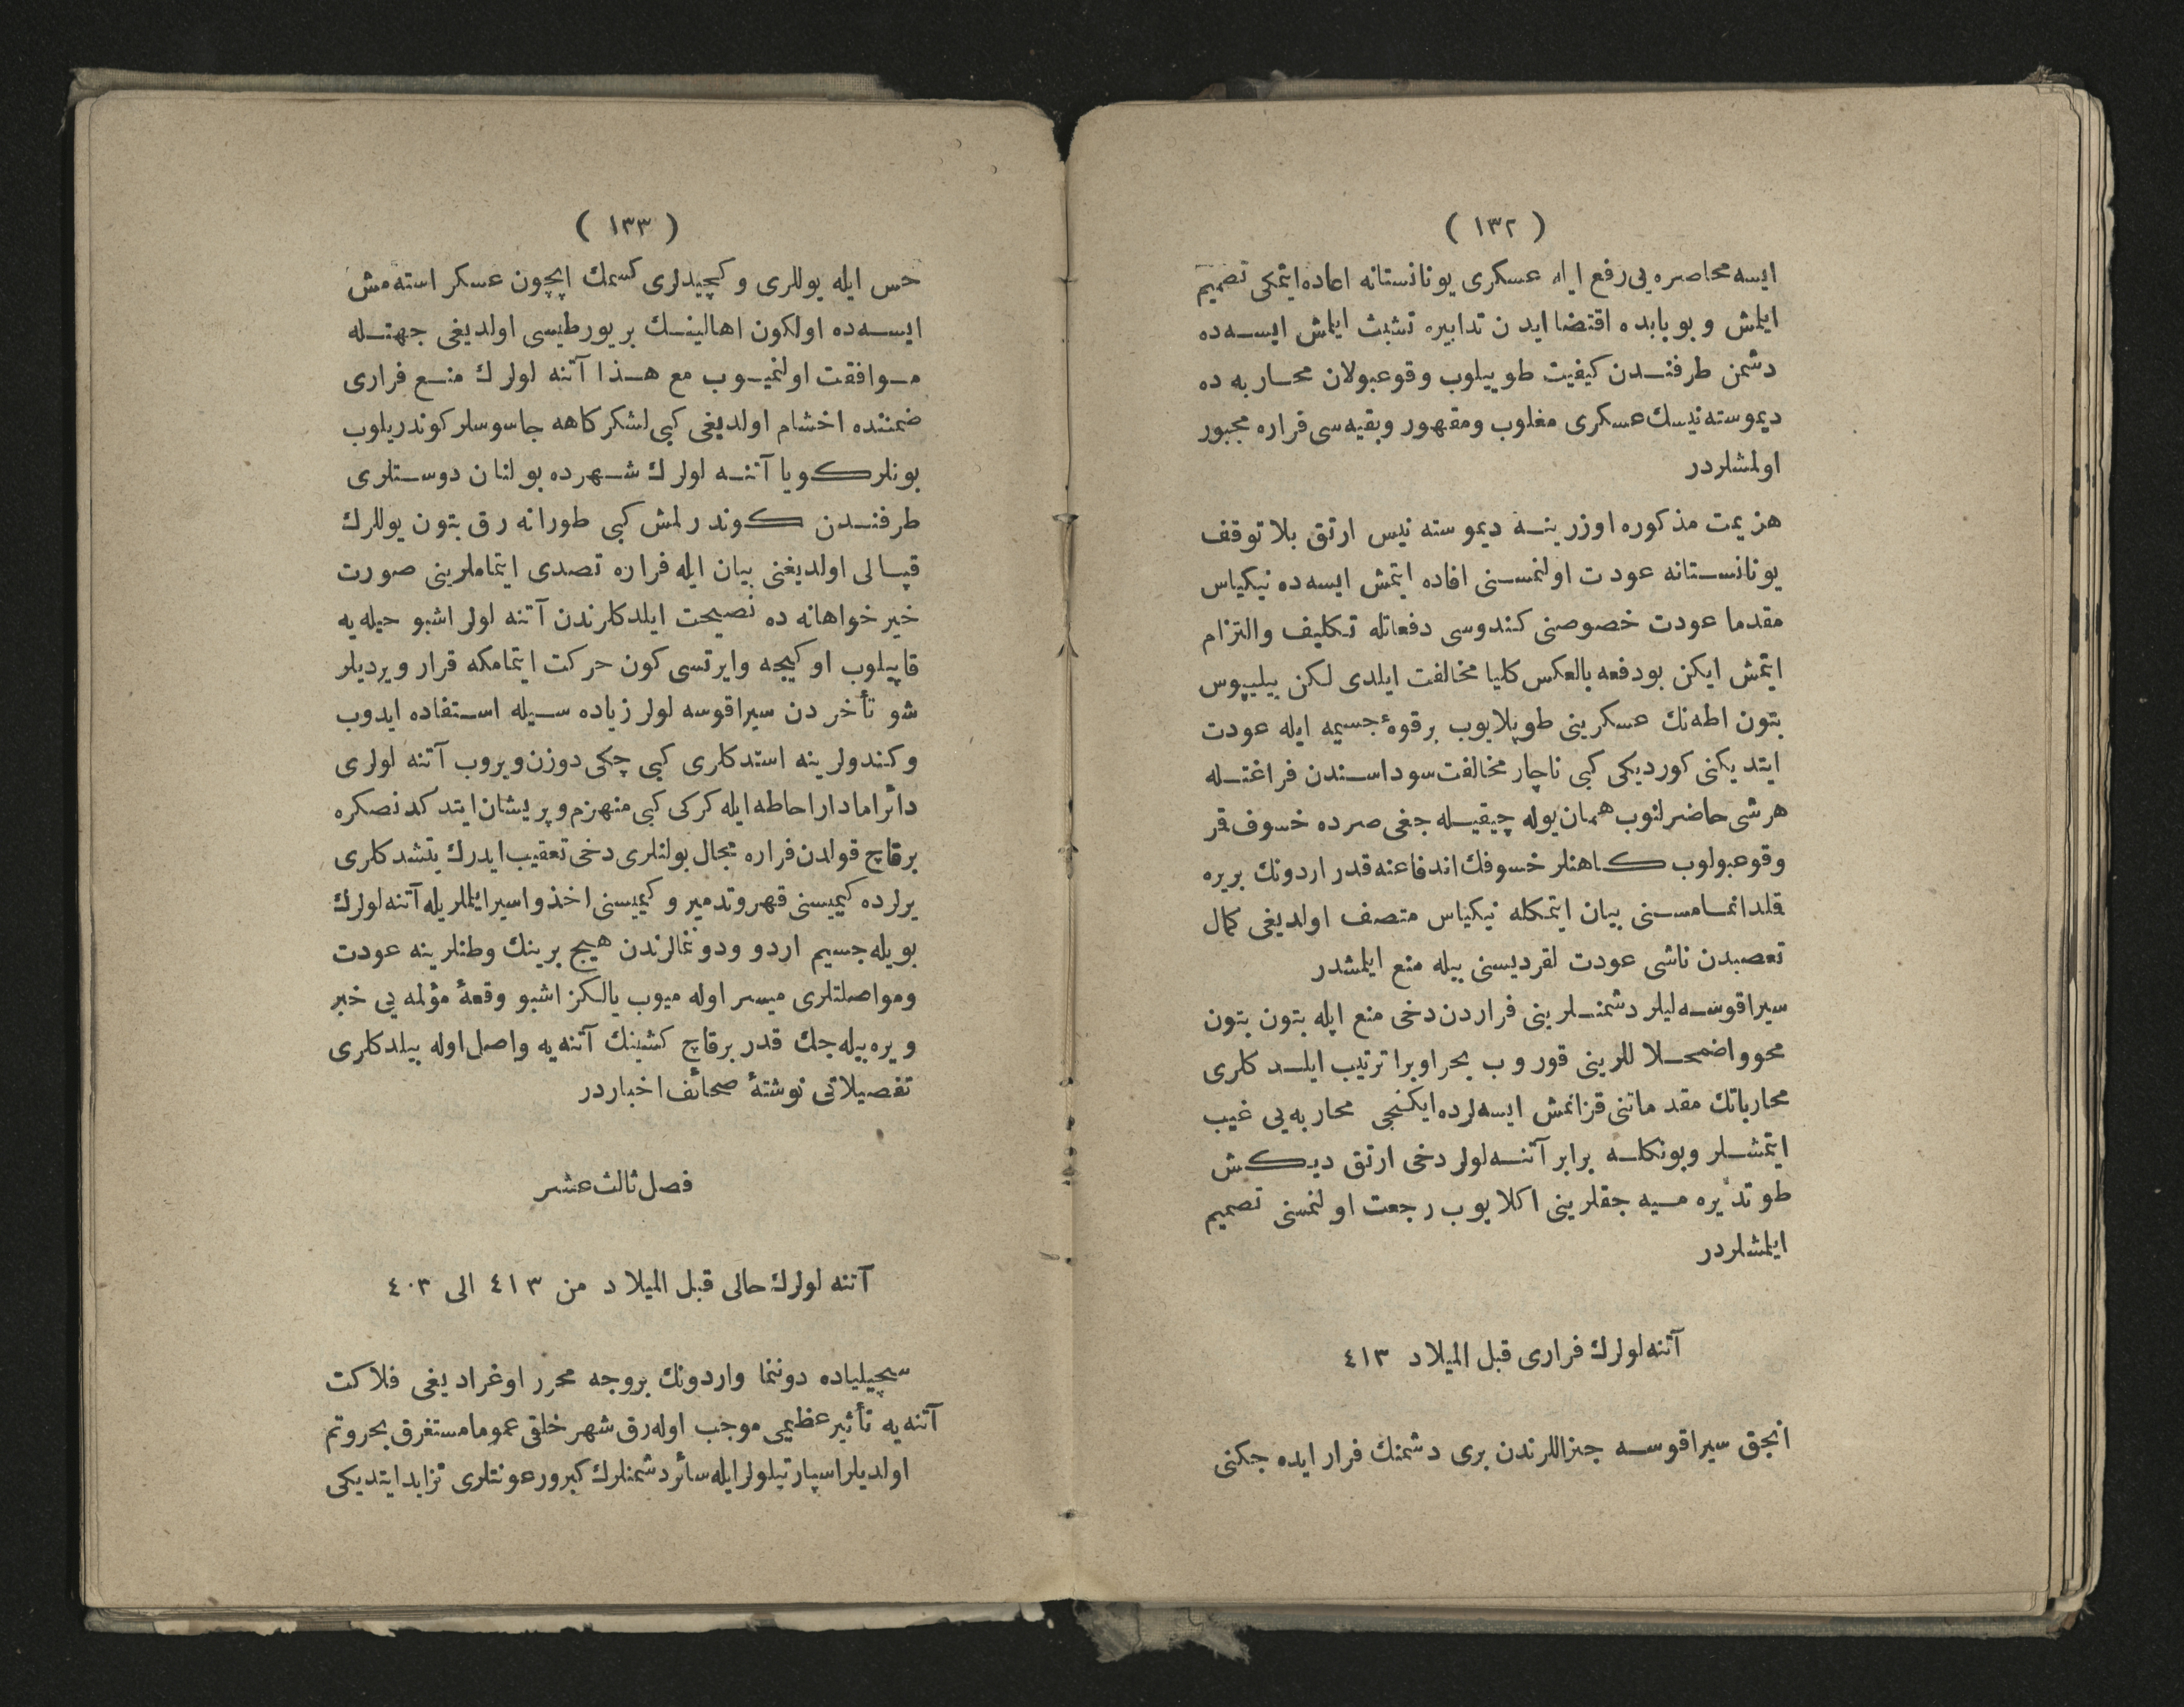 ( ١٣٢ )
ایسه محاصره یی رفع ایله عسکری یونانستانه اعاده ایتمکی تصمیم
ایلمش و بوبابده اقتضا ایدن تدابیره تشبث ایلمش ایسه ده
دشمن طرفندن کیفیت طوییلوب وقوعبولان محاربه ده
دیموسته نیسك عسکری مغلوب ومقهور وبقیه سی فراره مجبور
اولمشلردر
هزیمت مذکوره اوزرینه دیموسته نیس ارتق بلا توقف
یونانستانه عودت اولنمسنی افاده ایتمش ایسه ده نیکیاس
مقدما عودت خصوصنی کندوسی دفعاتله تکلیف والتزام
ایتمش ایکن بودفعه بالعکس کلیا مخالفت ایلدی لکن ییلیپوس
بتون اطه نك عسکرینی طوپلایوب برقوهٔ جسیمه ایله عودت
ایتدیکنی کوردیکی کبی ناچار مخالفت سوداسندن فراغتله
هرشی حاضرلنوب همان یوله چیقیله جغی صره ده خسوف قمر
وقوعبولوب کاهنلر خسوفك اندفاعنه قدر اردونك بریره
قلدانمامسنی بیان ایتمکله نیکیاس متصف اولدیغی کمال
تعصبدن ناشی عودت لقردیسنی بیله منع ایلمشدر
سیراقوسه لیلر دشمنلرینی فراردن دخی منع ایله بتون بتون
محوواضمحلاللرینی قوروب بحراوبرا ترتیب ایلدکلری
محارباتك مقدماتنی قزانمش ایسه لرده ایکنجی محاربه یی غیب
ایتمشلر وبونکله برابر آتنه لولر دخی ارتق دیکش
طوتدیره میه جقلرینی اکلایوب رجعت اولنمسنی تصمیم
ایلمشلردر
آتنه لولرك فراری قبل المیلاد ٤١٣
انجق سیراقوسه جنراللرندن بری دشمنك فرار ایده جکنی
( ١٣٣ )
حس ایله یوللری و کچیدلری کسمك ایچون عسکر استه مش
ایسه ده اولکون اهالینك بریورطیسی اولدیغی جهتله
موافقت اولنمیوب مع هذا آتنه لولرك منع فراری
ضمننده اخشام اولدیغی کبی لشکرکاهه جاسوسلر کوندریلوب
بونلر کویا آتنه لولرك شهرده بولنان دوستلری
طرفندن کوندرلمش کبی طورانه رق بتون یوللرك
قپالی اولدیغنی بیان ایله فراره تصدی ایتماملرینی صورت
خیرخواهانه ده نصیحت ایلدکلرندن آتنه لولر اشبو حیله یه
قاپیلوب اوکیجه وایرتسی کون حرکت ایتمامکه قرار ویردیلر
شو تأخردن سیراقوسه لولر زیاده سیله استفاده ایدوب
وکندولرینه استدکلری کبی چکی دوزن ویروب آتنه لولری
دائراماداراحاطه ایله کرکی کبی منهزم وپریشان ایتدکدنصکره
برقاچ قولدن فراره مجال بولنلری دخی تعقیب ایدرك یتشدکلری
یرلرده کیمیسنی قهروتدمیر و کیمیسنی اخذ واسیر ایللریله آتنه لولرك
بویله جسیم اردو ودوننمالرندن هیچ برینك وطنلرینه عودت
ومواصلتلری میسر اوله میوب یالکز اشبو وقعهٔ مؤلمه یی خبر
ویره بیله جك قدر برقاچ کشینك آتنه یه واصل اوله بیلدکلری
تفصیلاتی نوشتهٔ صحائف اخباردر
فصل ثالث عشر
آتنه لولرك حالی قبل المیلاد من ٤١٣ الی ٤٠٣
سیچیلیاده دوننما واردونك بروجه محرر اوغرادیغی فلاکت
آتنه یه تأثیر عظیمی موجب اوله رق شهر خلقی عموما مستغرق بحروتم
اولدیلر اسپارتیلولر ایله سائر دشمنلرك کبرورعونتلری تزاید ایتدیکی